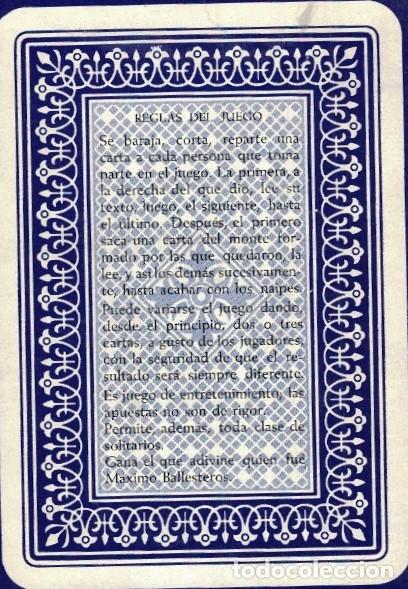 REGLAS DEL JUEGO
Se baraja, corta, reparte una
carta a cada persona que toma
parte en el juego. La primera, a
la derecha del que dio, lee su
texto, luego, el siguiente, hasta
el último. Después, el primero
saca una carta del monte for-
mado por las que quedaron, la
lee, y así los demás sucesivamen-
te, hasta acabar con los naipes.
Puede variarse el juego dando,
desde el principio, dos o tres
cartas, a gusto de los jugadores,
con la seguridad de que el re-
sultado será siempre diferente.
Es juego de entretenimiento, las
apuestas no son de rigor.
Permite, además, toda clase de
solitarios.
Gana el que adivine quien fue
Máximo Ballesteros.
todocoleccion